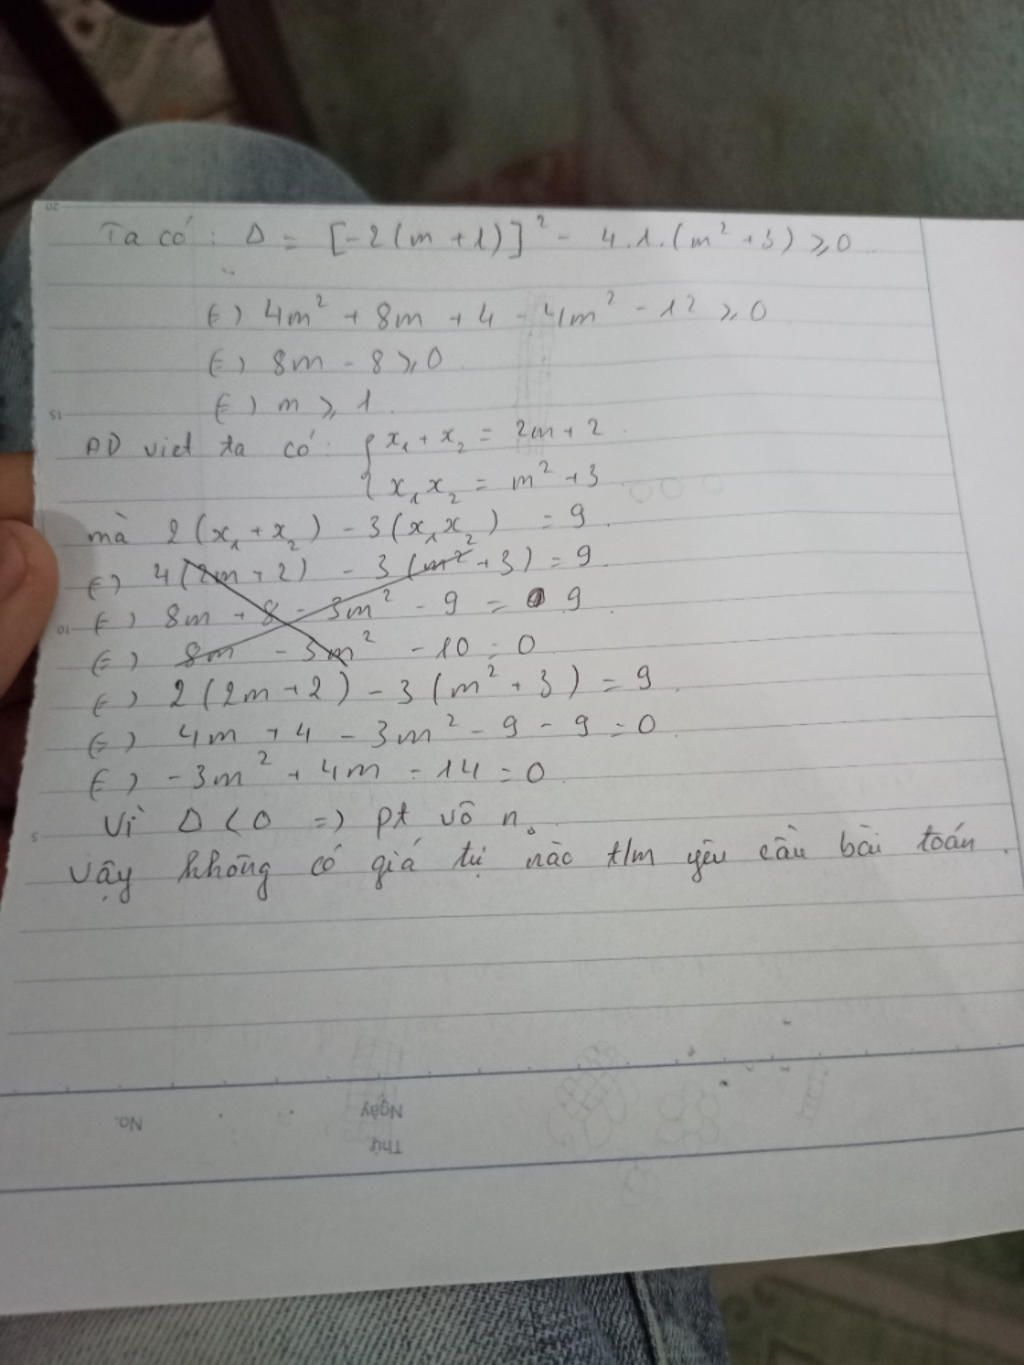 Ta có: Δ = [-2(m+1)]² - 4.1.(m²+3) ≥ 0
(=) 4m² + 8m + 4 - 4m² - 12 ≥ 0
(=) 8m - 8 ≥ 0
(=) m ≥ 1.
AD viet ta có: { x₁ + x₂ = 2m + 2
{ x₁x₂ = m² + 3
mà 2(x₁+x₂) - 3(x₁x₂) = 9.
(=) 4(2m+2) - 3(m²+3) = 9
(=) 8m + 8 - 3m² - 9 = 9
(=) 8m - 3m² - 10 = 0
(=) 2(2m+2) - 3(m²+3) = 9
(=) 4m + 4 - 3m² - 9 - 9 = 0
(=) -3m² + 4m - 14 = 0
Vì Δ < 0 => pt vô n₀
Vậy không có giá tị nào t/m yêu cầu bài toán.
No.
Ngày
Thứ
20
15
10
5